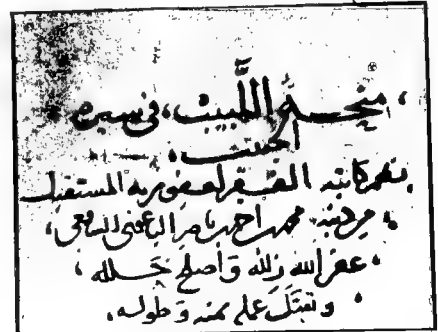 منحة اللَّبيب، فى سيرة
الحبيب،
بقلم كاتبه الفقير لعفو ربه المستقيل
من ذنبه محمد احمد ناصر الباعونى الشافعى،
غفر الله زلله وَاصلح خَلله،
وتقبَّل عمله بمنه وَطوله،